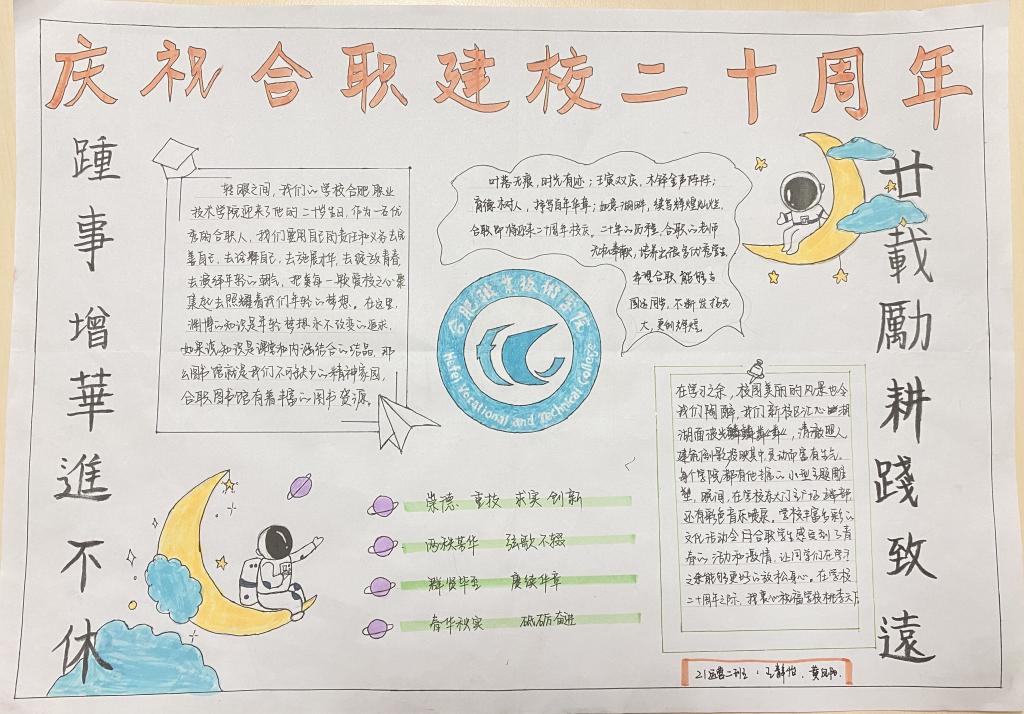 庆祝合职建校二十周年
踵事增華進不休
廿載勵耕踐致遠
转眼之间，我们的学校合肥职业
技术学院迎来了他的二十岁生日，作为一名优
秀的合职人，我们要用自己的责任和义务去完
善自己，去诠释自己，去施展才华，去绽放青春
去演绎年轻的朝气，把每每一颗爱校之心聚
集起去照耀着我们年轻的梦想。在这里，
渊博的知识是年轻梦想永不改变的追求，
如果说知识是课堂和内涵结合的结晶，那
么图书馆就是我们不可缺少的精神家园，
合职图书馆有着丰富的图书资源。
叶落无痕，时光有迹；壬寅双庆，木铎金声阵阵；
育德树人，抒写百年华章；如意湖畔，续写辉煌灿烂。
合职即将迎来二十周年校庆。二十年的历程，合职的老师
无私奉献，培养出很多优秀学生
希望合职能够与
国运同步，不断发扬光
大，更创辉煌
合肥職業技術學院
Hefei Vocational and Technical College
在学习之余，校园美丽的风景也令
我们陶醉，我们新校区汇心湖
湖面波光，清澈照人
建筑倒影投映其中，灵动而富有生气。
每个学院都有他独的小型主题雕
塑，晚间，在学校东大门主广场
还有彩色音乐喷泉。学校丰富多彩的
文化活动令合职学生感受到了青
春的活动和激情，让同学们在学习
之余能够更好的放松身心。在学校
二十周年之际，我衷心祝福学校桃李天下
崇德 重技 求实 创新
两秩芳华 弦歌不辍
群贤毕至 赓续华章
春华秋实 砥砺奋进
21运营二班：王静怡、黄